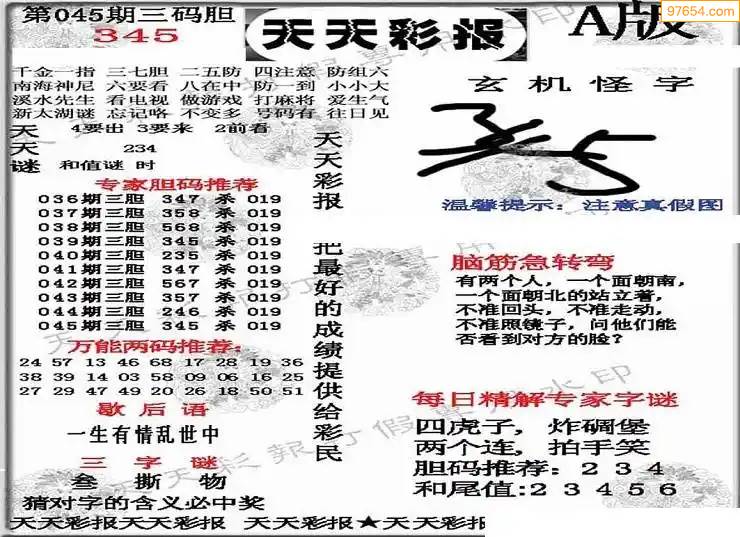 第045期三码胆
345
天天彩报
A版
97654.com
千金一指 三七胆 二五防 四注意 防组六
南海神尼 六要看 八在中 防一到 小小大
溪水先生 看电视 做游戏 打麻将 爱生气
新太湖谜 忘记咯 不变多 号码有 往日见
天 4要出 3要来 2前看
天 234
谜 和值谜 时
专家胆码推荐
036期三胆 347 杀 019
037期三胆 358 杀 019
038期三胆 568 杀 019
039期三胆 345 杀 019
040期三胆 235 杀 019
041期三胆 347 杀 019
042期三胆 567 杀 019
043期三胆 357 杀 019
044期三胆 246 杀 019
045期三胆 345 杀 019
万能两码推荐:
24 57 13 46 68 17 28 19 36
38 39 14 03 58 09 06 16 25
27 29 47 49 20 26 18 50 51
歇后语
一生有情乱世中
三字谜
叁 撕 物
猜对字的含义必中奖
天天彩报 把最好的成绩提供给彩民
玄机怪字
温馨提示：注意真假图
脑筋急转弯
有两个人，一个面朝南，
一个面朝北的站立着，
不准回头，不准走动，
不准照镜子，问他们能
否看到对方的脸？
每日精解专家字谜
四虎子，炸碉堡
两个连，拍手笑
胆码推荐：234
和尾值:23456
天天彩报天天彩报 天天彩报★天天彩报